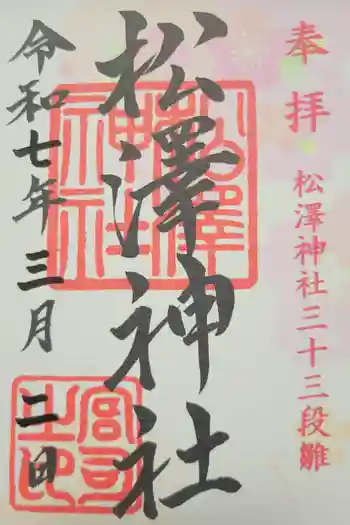 奉拝
松澤神社三十三段雛
松澤神社
松澤神社
令和七年三月二日
宮司之印